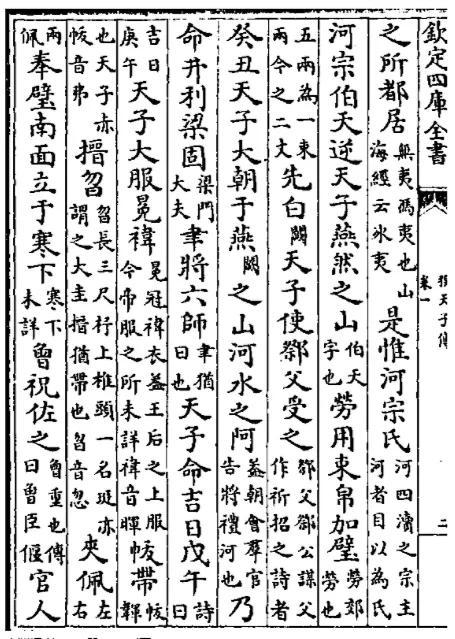 欽定四庫全書 穆天子傳 卷一 二
之所都居無夷馮夷也山海經云冰夷是惟河宗氏河四瀆之宗主河者因以為氏
河宗伯天逆天子燕然之山伯天字也勞用束帛加璧勞郊勞也
五兩為一束兩今之二丈先白闕天子使𨛬父受之𨛬父𨛬公謀父作祈招之詩者
癸丑天子大朝于燕闕之山河水之阿蓋朝會羣官告將禮河也乃
命井利梁固梁門大夫聿將六師聿猶曰也天子命吉日戊午詩曰
吉日庚午天子大服冕褘冕冠褘衣蓋王后之上服今帝服之所未詳褘音暉帗帶帗韠
也天子赤帗音弗搢曶曶長三尺杼上椎頭一名珽亦謂之大圭搢猶帶也曶音忽夾佩左右
兩佩奉璧南面立于寒下寒下未詳曾祝佐之曾重也傳曰曾臣偃官人